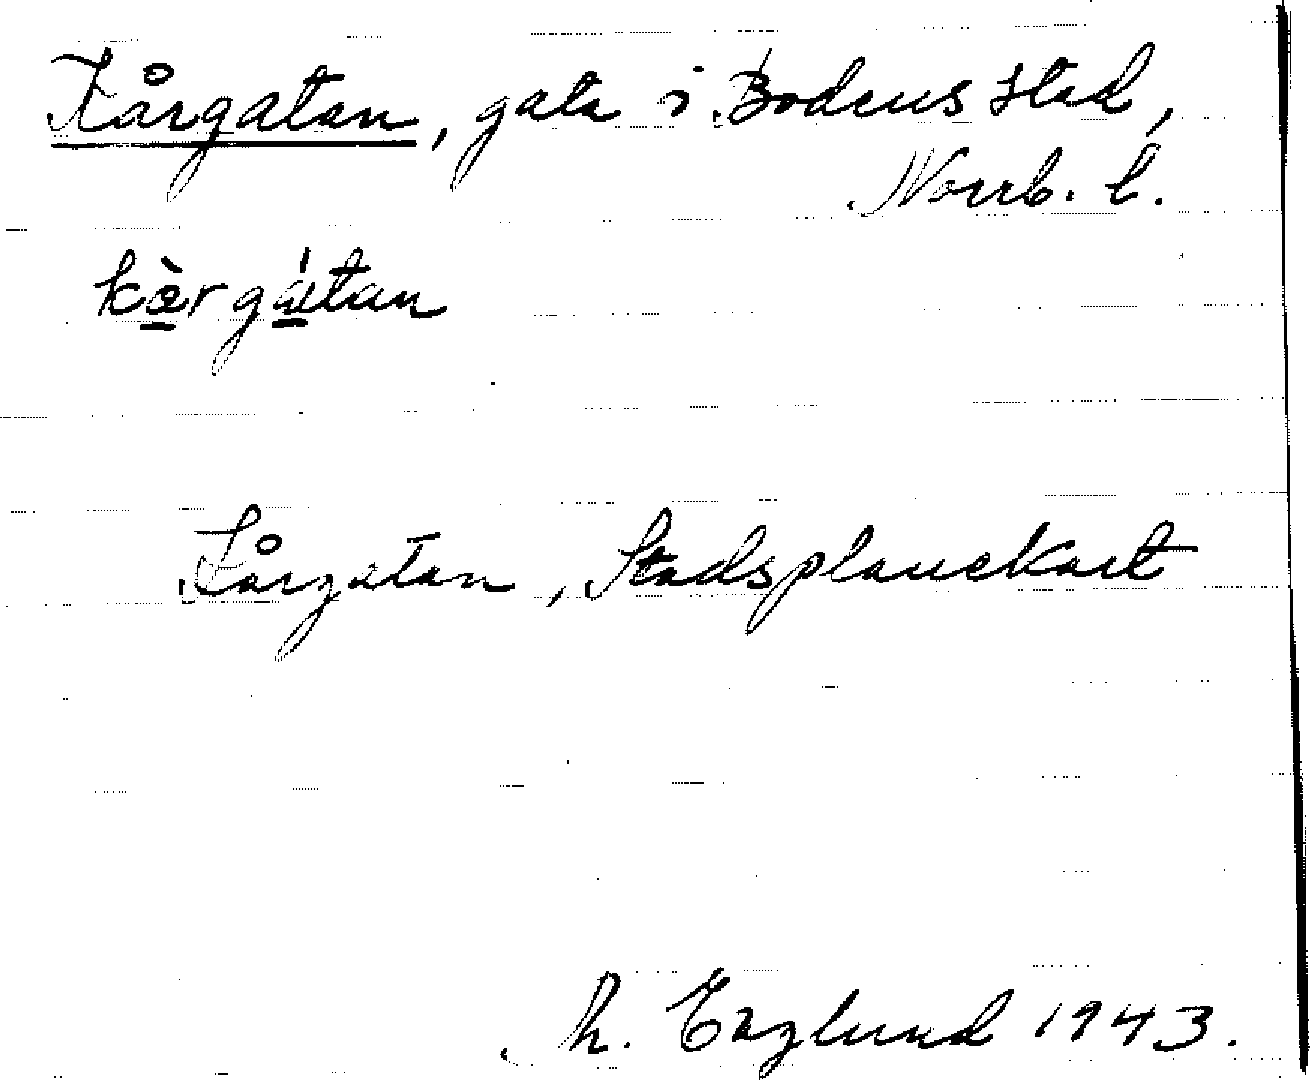 Kårgatan, gata i Bodens stad,
Norrb. l.
kàrgátan
Kårgatan, Stadsplanekart
h. Englund 1943.